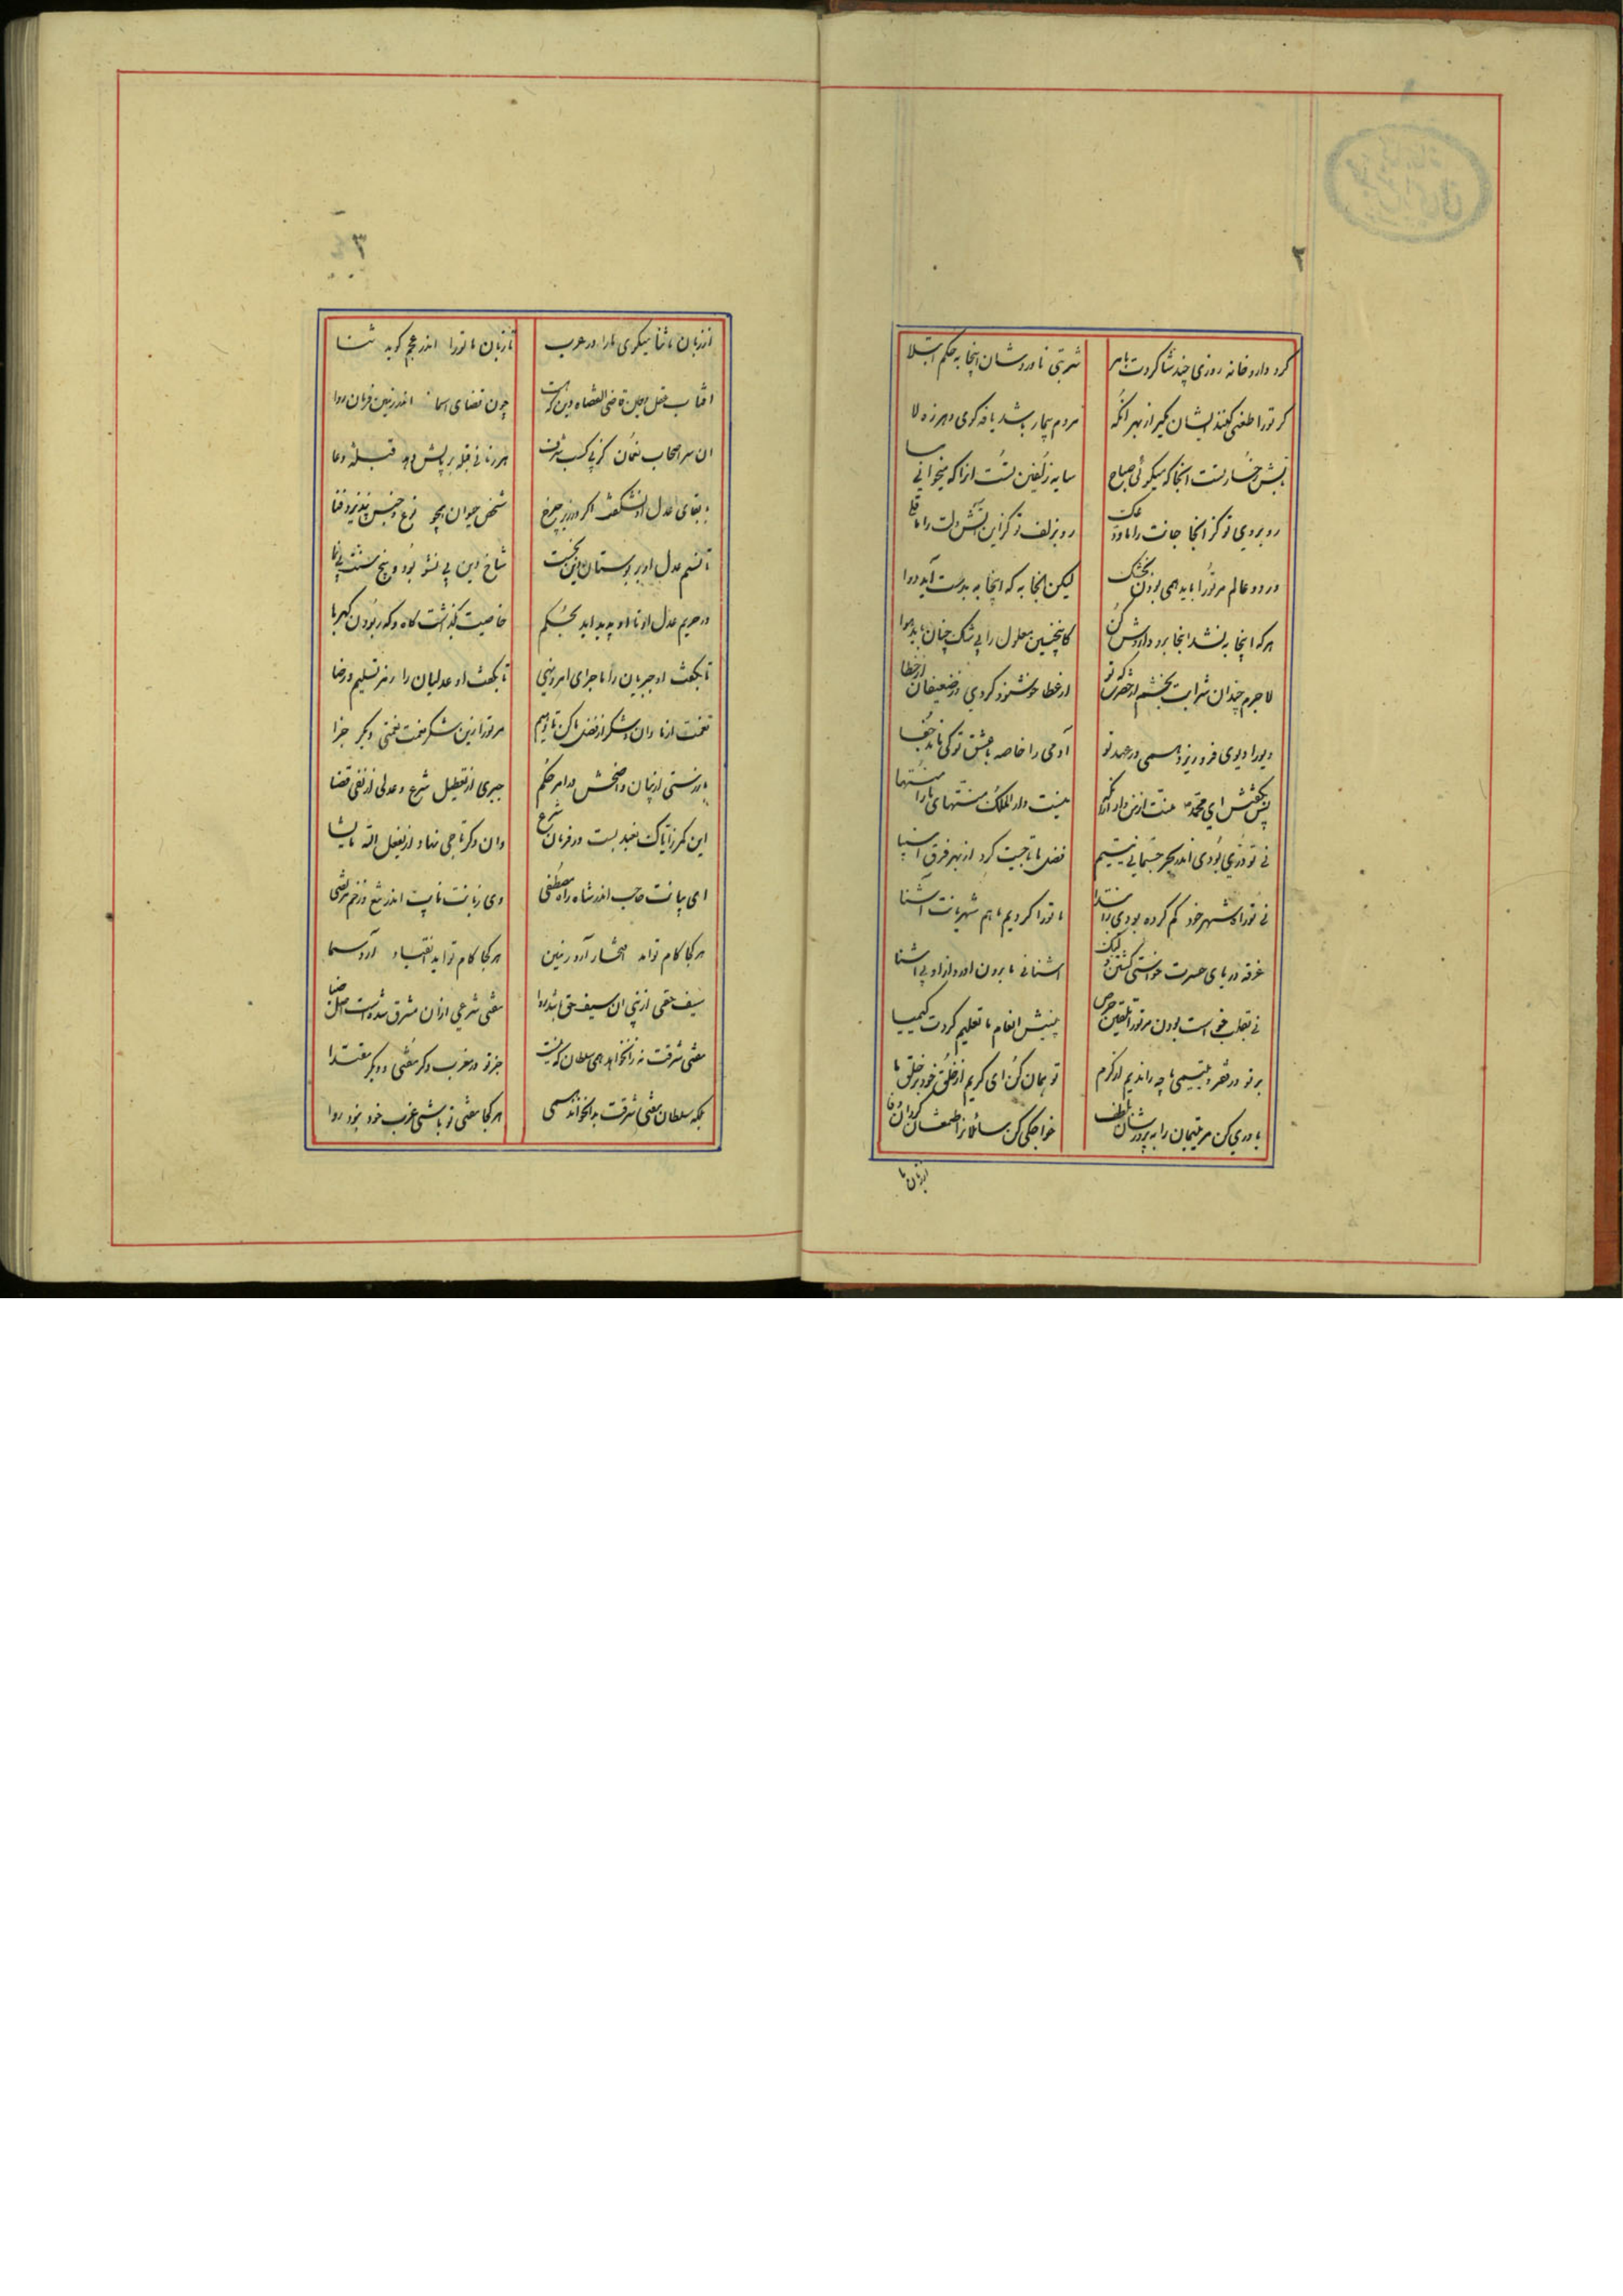 ۲
کرد دارو خانه روزی چند شاکردت بامر شربتی ناوردشان اینجا به حکم ابتلا
کر تورا طعنی کنند ایشان مکیر از بهر انکه مردم بیمار باشد یافه کوی و هرزه لا
تابش رخسار تست انجا که میکوئی صباح سایه زلفین تست انرا که میخوانی مسا
روبروی تو کز انجا جانت را ما ودعک رو بزلف تو کزاین اتش دلت را ما قلی
در دو عالم مر تورا باید همی بودن بجشک لیکن انجا به که اینجا به بدست آید دوا
هر که اینجا به نشد انجا برو داروش کن کاینچنین معلول را بی شک چنان باید هوا
لاجرم چندان شرابت بخشم از حضرت که تو از عطا خوشنود کردی وز ضعیفان از خطا
دیو را دیوی فرو ریزد همی در عهد تو آدمی را خاصه با عشق تو کی ماند جفا
پس بکفتش ای محمد منت از من دار ازانکه نیست دار الملک منتهای ما را منتها
نی تو دری بودی اندر بحر جسمانی یتیم فضل ما تاجیت کرد از بهر فرق انبیا
نی تو راه شهر خود کم کرده بودی ز ابتدا ما تورا کردیم با هم شهریانت آشنا
غرقه دریای حسرت خواستی کشتن ولیک آشنائی ما برون اورد از او بی آشنا
نی بقلب خواست بودن مر تورا تلقین حرص پیش انعام ما تعلیم کردت کیمیا
بر تو در فقر و یتیمی ما چه راندیم از کرم تو همان کن ای کریم از خلق خود بر خلق ما
مادری کن مر یتیمان را به پرورشان بلطف خواجکی کن سائلانرا طمعشان کردان وفا
از زبان ما
۳
از زبان ما ثنا میکوی ما را در عرب تا زبان ما تورا اندر عجم کوید ثنا
افتاب عقل و جان قاضی القضاه دین که هست چون قضای اسمان اندر زمین فرمان روا
ان سر اصحاب نعمان کز پی کسب شرف هر زمانی قبله بر پایش دهد قبله دعا
با بقای عدل او نشکفت اکر در زیر چرخ شخص حیوان همچو نوع و جنس نپذیرد فنا
تا نسیم عدل او بر بوستان دین بجست شاخ دین بی نشو بود و بیخ سنت بی نما
در حریم عدل او تا او پدید اید بحکم خاصیت بکذاشت کاه و که ربودن کهربا
تا بکفت او جبریان را ماجرای امر و نهی تا بکفت او عدلیان را رمز تسلیم و رضا
نعمت از ما دان و شکر از فضل ما کن تا دهیم مر تورا زین شکر نعمت نعمتی دیکر جزا
باز رستی از بیان واضحش در امر حکم جبری از تعطیل شرع و عدلی از نفی قضا
این کمر ز ایاک نعبد بست در فرمان شرع وان دکر تاجی نهاد از یفعل الله ما یشا
ای بیانت حاجب اندر شاه راه مصطفی وی زبانت نایب اندر تیغ و زخم مرتضی
هر کجا کام تو امد افتخار آرد زمین هر کجا کام تو اید انقیاد آرد سما
سیف حقی از پی ان سیف حق باشد روا مفتی شرعی ازان مشرق شده است اصل ضیا
مفتی شرقت نه زان خواند همی سلطان که نیست جز تو در مغرب دکر مفتی و دیکر مقتدا
بلکه سلطان مفتی شرقت بدان خواند همی هر کجا مفتی تو باشی غرب خود نبود روا